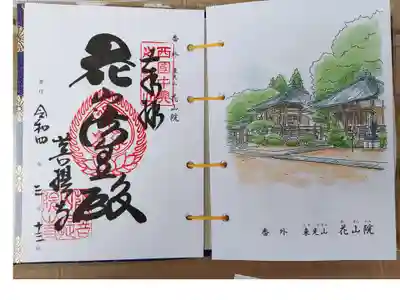 番外 東光山 花山院
奉拝
花山法皇殿
菩提寺
令和四年三月十二日
番外 東光山 花山院